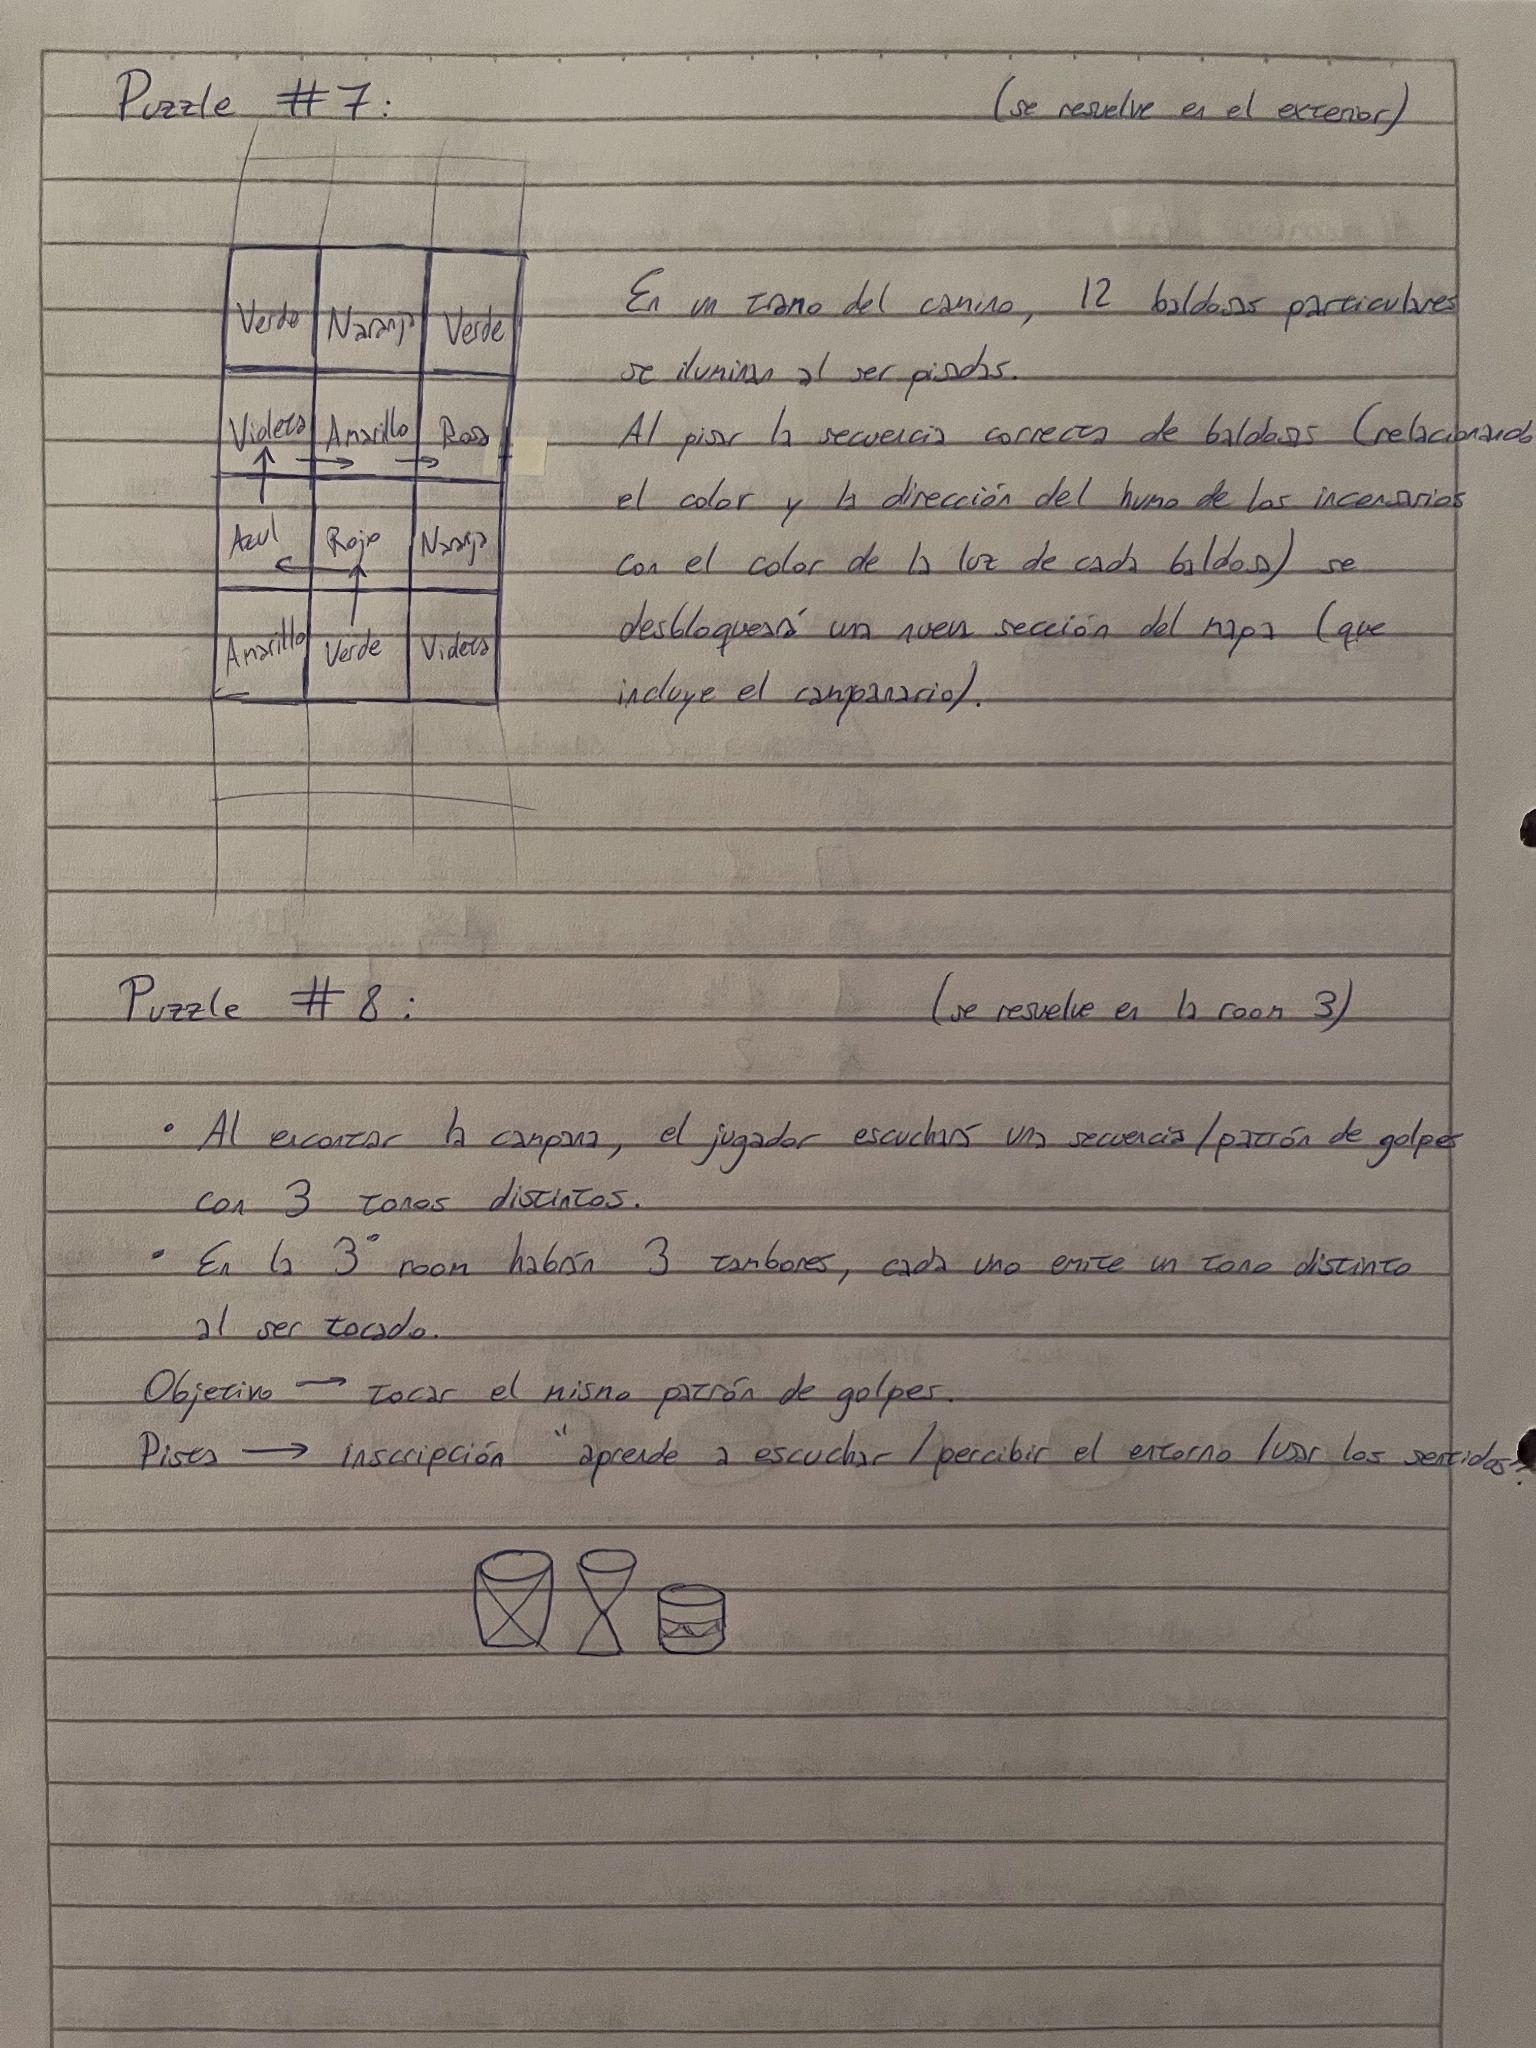 Puzzle #7: (se resuelve en el exterior)
Verde Naranja Verde
Violeta Amarillo Rosa
Azul Rojo Naranja
Amarillo Verde Violeta
En un tramo del camino, 12 baldosas particulares
se iluminan al ser pisadas.
Al pisar la secuencia correcta de baldosas (relacionando
el color y la dirección del humo de los incensarios
con el color de la luz de cada baldosa) se
desbloqueará una nueva sección del mapa (que
incluye el campanario).
Puzzle #8: (se resuelve en la room 3)
• Al encontrar la campana, el jugador escuchará una secuencia/patrón de golpes
con 3 tonos distintos.
• En la 3° room habrán 3 tambores, cada uno emite un tono distinto
al ser tocado.
Objetivo → tocar el mismo patrón de golpes.
Pista → inscripción "aprende a escuchar/percibir el entorno/usar los sentidos".